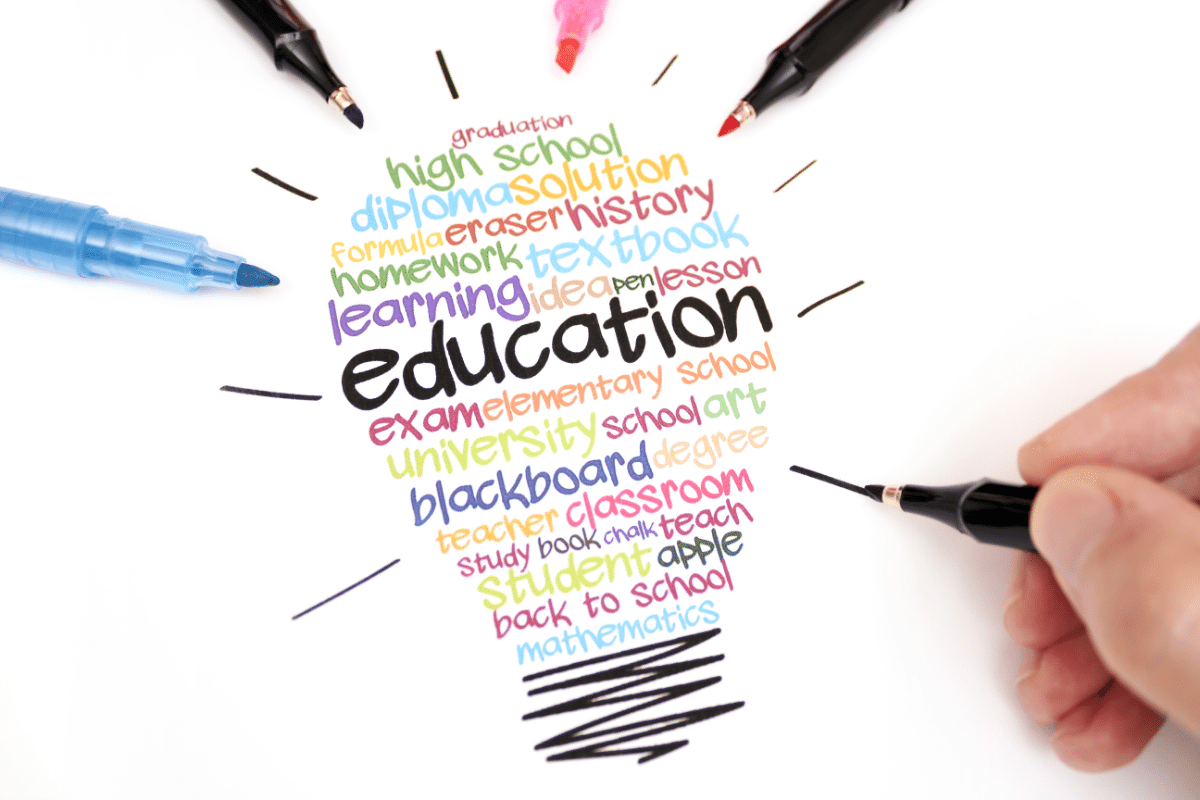 graduation
high school
diploma solution
formula eraser history
homework textbook
learning idea pen lesson
education
exam elementary school
university school art
blackboard degree
teacher classroom
study book chalk teach
student apple
back to school
mathematics